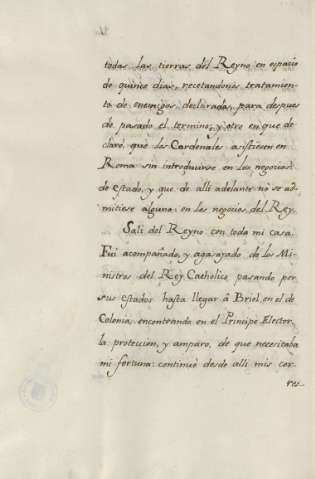 todas las tierras del Reyno en espacio
de quince dias, recetandonos tratamien-
to de enemigos declarados, para despues
de pasado el termino, y otro en que de-
claró, que los Cardenales asistiesen en
Roma sin introducirse en los negocios
de estado, y que de alli adelante no se ad-
mitiese alguno en los negocios del Rey.
Sali del Reyno con toda mi casa.
Fui acompañado, y agasajado de los Mi-
nistros del Rey Catholico pasando por
sus estados hasta llegar á Briel, en el de
Colonia, encontrando en el Principe Elector,
la proteccion, y amparo, de que necesitaba
mi fortuna: continué desde alli mis cor-
res-